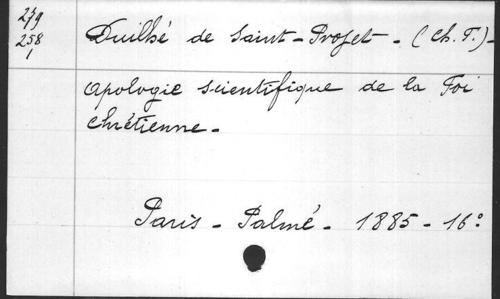 279
258
1
Duilhé de Saint-Projet - (Ch. F.) -
Apologie scientifique de la Foi
chrétienne -
Paris - Palmé - 1885 - 16°